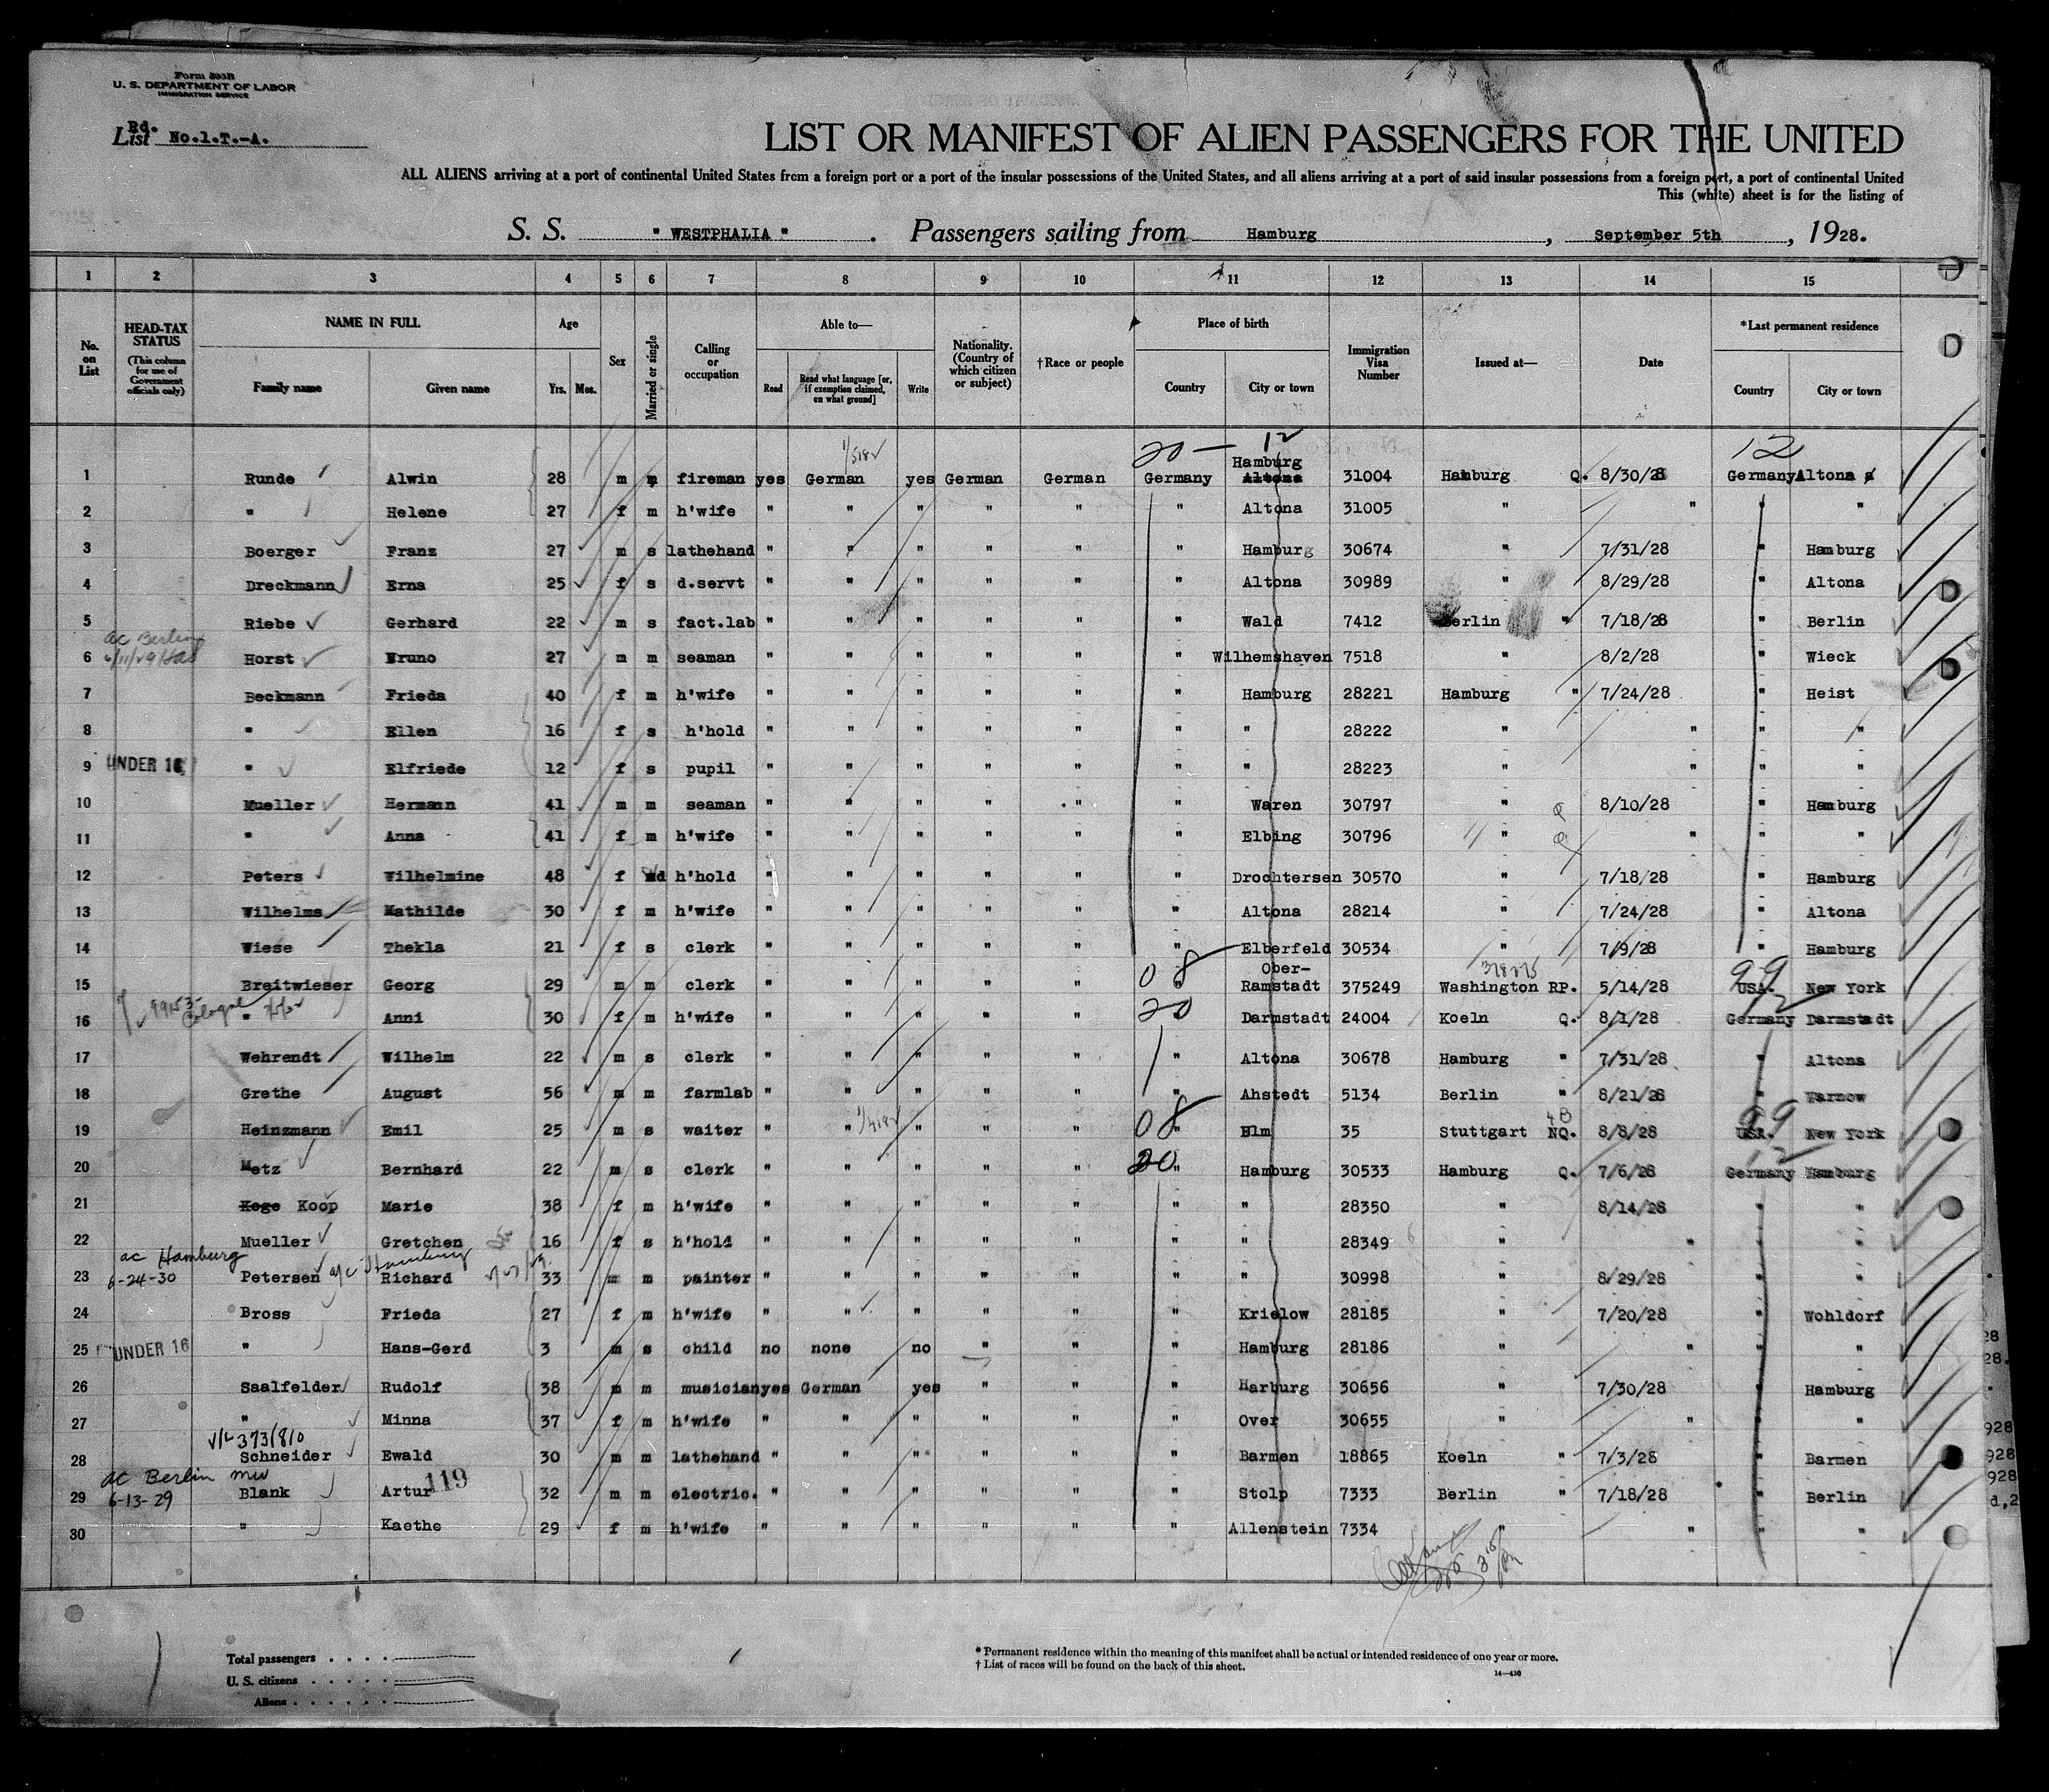 Form 500B
U. S. DEPARTMENT OF LABOR
IMMIGRATION SERVICE
Rd.
List No.1.T.-A.
LIST OR MANIFEST OF ALIEN PASSENGERS FOR THE UNITED
ALL ALIENS arriving at a port of continental United States from a foreign port or a port of the insular possessions of the United States, and all aliens arriving at a port of said insular possessions from a foreign port, a port of continental United
This (white) sheet is for the listing of
S. S. " WESTPHALIA " . Passengers sailing from Hamburg , September 5th , 1928.
1 2 3 4 5 6 7 8 9 10 11 12 13 14 15
No. on List
HEAD-TAX STATUS
(This column for use of Government officials only)
NAME IN FULL
Family name Given name
Age
Yrs. Mos.
Sex
Married or single
Calling or occupation
Able to—
Read Read what language [or, if exemption claimed, on what ground] Write
Nationality. (Country of which citizen or subject)
†Race or people
Place of birth
Country City or town
Immigration Visa Number
Issued at—
Date
*Last permanent residence
Country City or town
20 — 12 12
Hamburg
1 Runde Alwin 28 m m fireman yes German yes German German Germany Altona 31004 Hamburg Q. 8/30/28 Germany Altona
2 " Helene 27 f m h'wife " " " " " " Altona 31005 " " " "
3 Boerger Franz 27 m s lathehand " " " " " " Hamburg 30674 " 7/31/28 " Hamburg
4 Dreckmann Erna 25 f s d.servt " " " " " " Altona 30989 " 8/29/28 " Altona
5 Riebe Gerhard 22 m s fact.lab " " " " " " Wald 7412 Berlin " 7/18/28 " Berlin
ac Berlin
6 Horst Bruno 27 m m seaman " " " " " " Wilhemshaven 7518 " 8/2/28 " Wieck
7 Beckmann Frieda 40 f m h'wife " " " " " " Hamburg 28221 Hamburg " 7/24/28 " Heist
8 " Ellen 16 f s h'hold " " " " " " " 28222 " " " "
9 UNDER 16 " Elfriede 12 f s pupil " " " " " " " 28223 " " " "
10 Mueller Hermann 41 m m seaman " " " " " " Waren 30797 " 8/10/28 " Hamburg
11 " Anna 41 f m h'wife " " " " " " Elbing 30796 " " " "
12 Peters Wilhelmine 48 f wd h'hold " " " " " " Drochtersen 30570 " 7/18/28 " Hamburg
13 Wilhelms Mathilde 30 f m h'wife " " " " " " Altona 28214 " 7/24/28 " Altona
14 Wiese Thekla 21 f s clerk " " " " " " Elberfeld 30534 " 7/9/28 " Hamburg
08 Ober- 99
15 Breitwieser Georg 29 m m clerk " " " " " " Ramstadt 375249 Washington RP. 5/14/28 USA. New York
20
16 " Anni 30 f m h'wife " " " " " " Darmstadt 24004 Koeln Q. 8/1/28 Germany Darmstadt
17 Wehrendt Wilhelm 22 m s clerk " " " " " " Altona 30678 Hamburg " 7/31/28 " Altona
18 Grethe August 56 m m farmlab " " " " " " Ahstedt 5134 Berlin " 8/21/28 " Warnow
08 99
19 Heinzmann Emil 25 m s waiter " " " " " " Elm 35 Stuttgart NQ. 8/8/28 USA. New York
20 12
20 Metz Bernhard 22 m s clerk " " " " " " Hamburg 30533 Hamburg Q. 7/6/28 Germany Hamburg
21 Koge Koop Marie 38 f m h'wife " " " " " " " 28350 " 8/14/28 " "
22 Mueller Gretchen 16 f s h'hold " " " " " " " 28349 " " " "
ac Hamburg
6-24-30
23 Petersen Richard 33 m m painter " " " " " " " 30998 " 8/29/28 " "
24 Bross Frieda 27 f m h'wife " " " " " " Krielow 28185 " 7/20/28 " Wohldorf
25 UNDER 16 " Hans-Gerd 3 m s child no none no " " " Hamburg 28186 " " " "
26 Saalfelder Rudolf 38 m m musician yes German yes " " " Harburg 30656 " 7/30/28 " Hamburg
27 " Minna 37 f m h'wife " " " " " " Over 30655 " " " "
V/L 373/810
28 Schneider Ewald 30 m m lathehand " " " " " " Barmen 18865 Koeln " 7/3/28 " Barmen
ac Berlin
6-13-29
119
29 Blank Artur 32 m m electric. " " " " " " Stolp 7333 Berlin " 7/18/28 " Berlin
30 " Kaethe 29 f m h'wife " " " " " " Allenstein 7334 " " " "
Total passengers
U. S. citizens
Aliens
* Permanent residence within the meaning of this manifest shall be actual or intended residence of one year or more.
† List of races will be found on the back of this sheet.
14—430